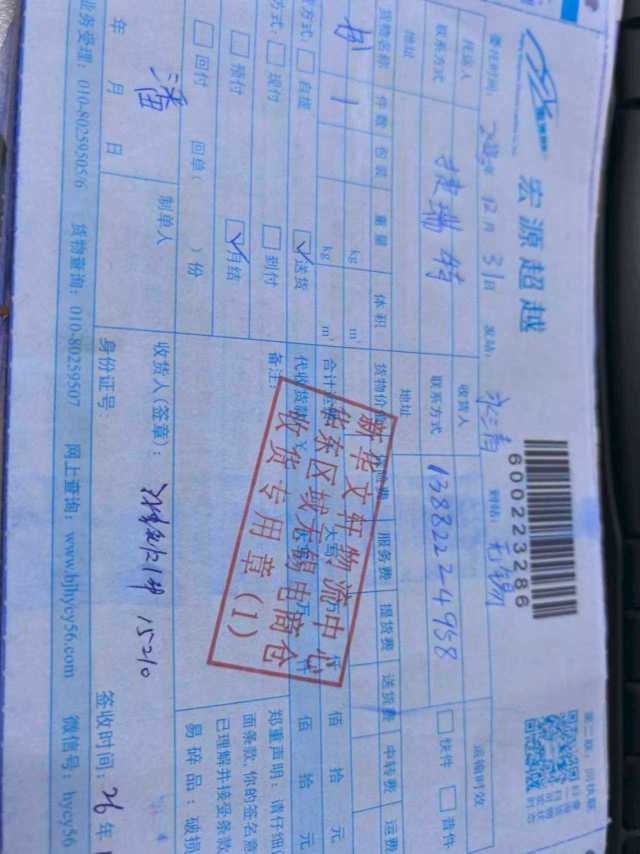 宏源超越
600223286
第二联：回执联
委托时间： 年 12 月 31 日 发站： 到站：无锡
托运人 捷瑞特 收货人 运输时效
联系方式 联系方式 13882224958 快件 普件
地址 地址
货物名称 件数 包装 重量 体积 货物价值 保险费 服务费 提货费 送货费 中转费 运费
书 1 kg m³
kg m³ 合计 大写 万 仟 佰 拾 元
方式： 自提 送货 代收货款 万 仟 佰 拾 元
方式： 现付 到付 备注：
预付 月结
回付 回单（ ）份
新华文轩物流中心
华东区域无锡电商仓
收货专用章（1）
郑重声明：请仔细
面条款，你的签名意
已理解并接受条款
易碎品：破损
潘 制单人 收货人（签章）： 15210
年 月 日 身份证号： 签收时间：26年
业务受理：010-80259505/6 货物查询：010-80259507 网上查询：www.bjhycy56.com 微信号：hycy56